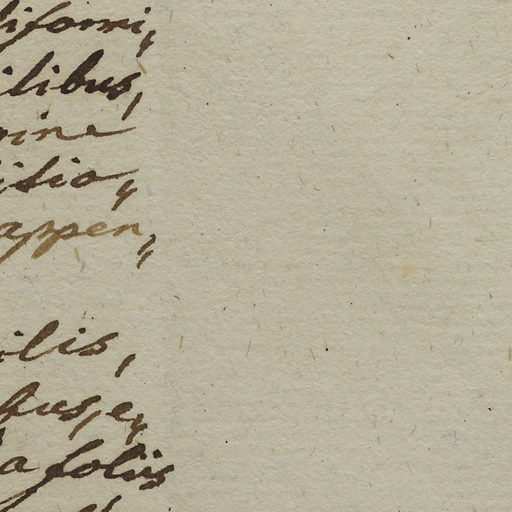 liformi,
ilibus,
rine
isio,
appen,
ilis,
bus, e,
a foliis